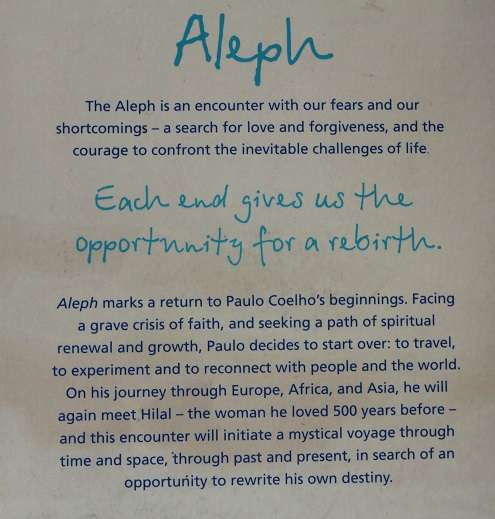 Aleph
The Aleph is an encounter with our fears and our
shortcomings – a search for love and forgiveness, and the
courage to confront the inevitable challenges of life.
Each end gives us the
opportunity for a rebirth.
Aleph marks a return to Paulo Coelho's beginnings. Facing
a grave crisis of faith, and seeking a path of spiritual
renewal and growth, Paulo decides to start over: to travel,
to experiment and to reconnect with people and the world.
On his journey through Europe, Africa, and Asia, he will
again meet Hilal – the woman he loved 500 years before –
and this encounter will initiate a mystical voyage through
time and space, through past and present, in search of an
opportunity to rewrite his own destiny.